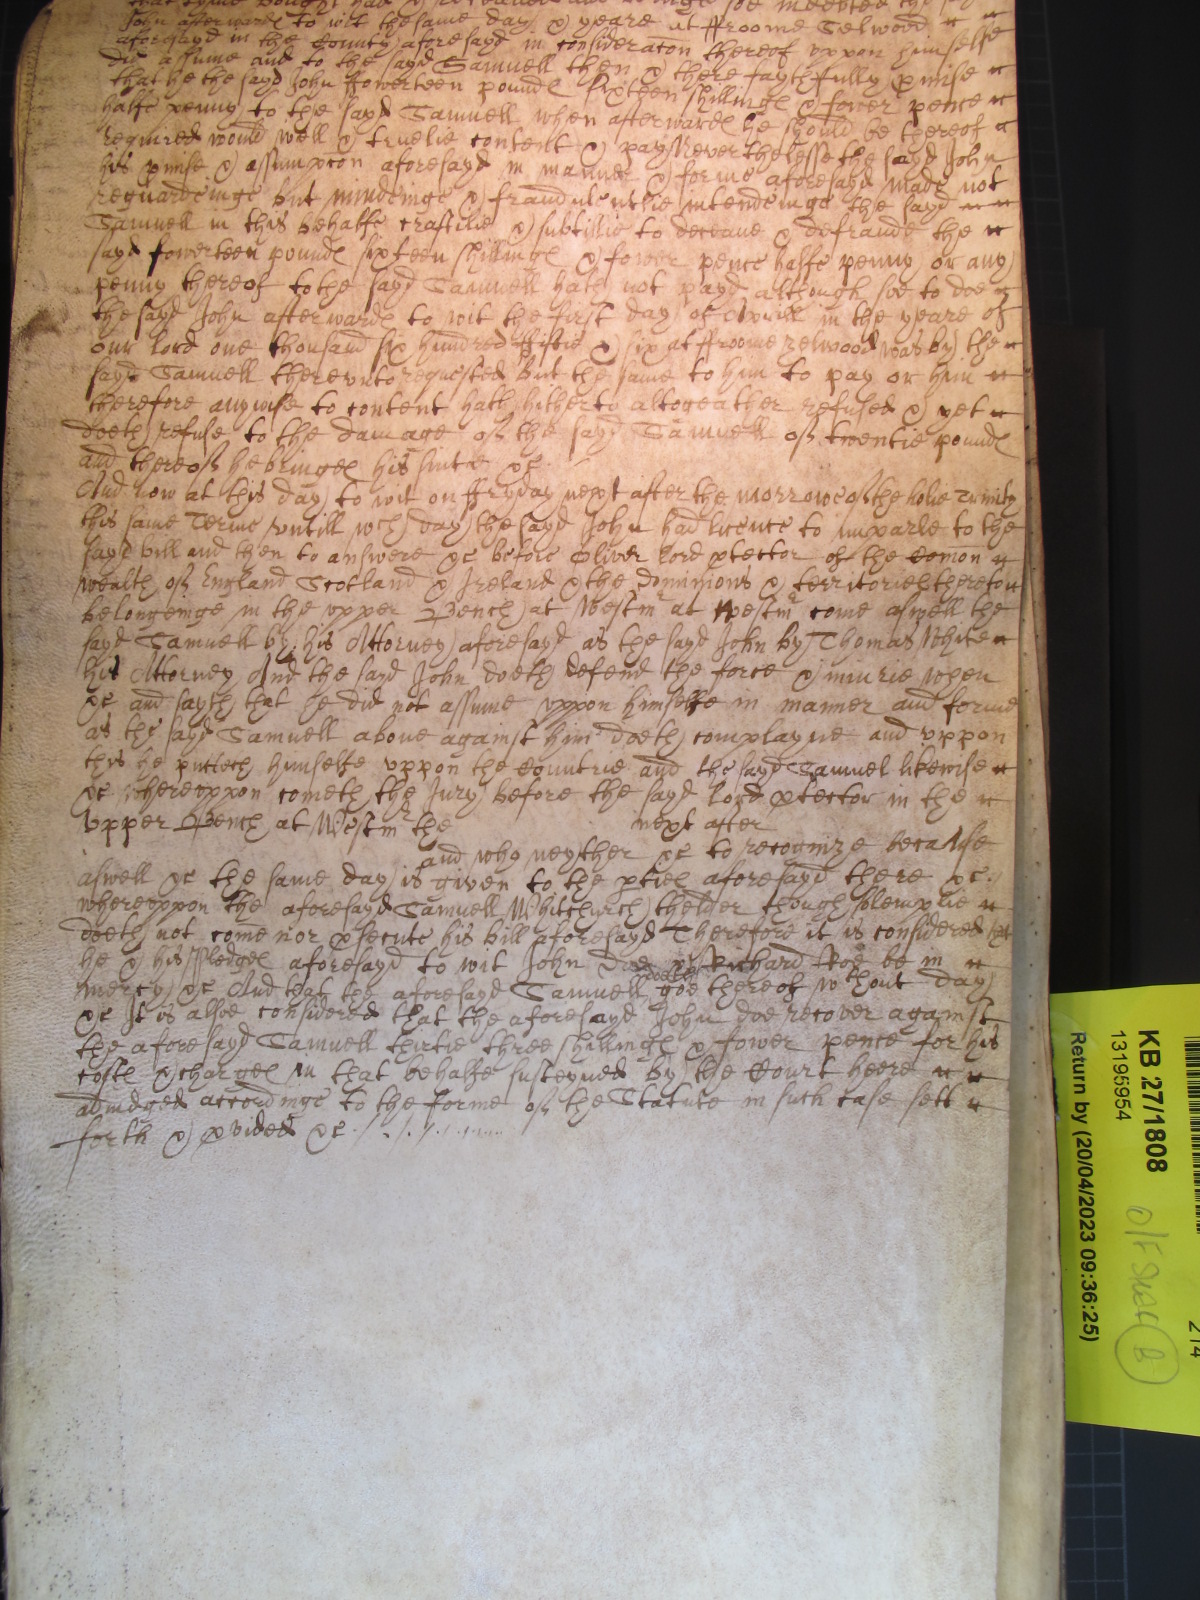 that tyme bought had & received and being soe indebted the sayd
John afterwards to wit the same day & yeare at ffroome Selwood
aforesayd in the County aforesayd in consideracon thereof uppon himselfe
did assume and to the sayd Samuell then & there faythfully pmise
that he the sayd John ffowerteen pounds sixteen shillings & fower pence
halfe penny to the sayd Samuell when afterwards he should be thereof
required would well & truelie content & pay Neverthelesse the sayd John
his pmise & assumpcon aforesayd in manner & forme aforesayd made not
reguardeinge but mindeinge & fraudulentlie intendeinge the sayd
Samuell in this behalfe craftilie & subtilie to deceave & defraude the
sayd fowerteen pounds sixteen shillings & fower pence halfe penny or any
penny thereof to the sayd Samuell hath not payd although soe to doe
the sayd John afterwards to wit the first day of Aprill in the yeare of
our lord one thousand six hundred fiftie & six at ffroome zelwood was by the
sayd Samuell thereunto requested But the same to him to pay or him
therefore anywise to content hath hitherto altogeather refused & yet
doeth refuse to the damage of the sayd Samuell of twentie pounds
and thereof he bringes his suite &c
And now at this day to wit on ffryday next after the morrowe of the holie Trinity
this same Terme untill wch day the sayd John had licence to imparle to the
sayd bill and then to answere &c before Oliver lord ptector of the Comon
wealth of England Scotland & Ireland & the dominions & territories thereton
belongeinge in the upper Bench at Westmr at Westmr come aswell the
sayd Samuell by his Attorney aforesayd as the sayd John by Thomas White
his Attorney And the sayd John doeth defend the force & iniurie when
&c and sayth that he did not assume uppon himselfe in manner and forme
as the sayd Samuell above against him doeth complayne and uppon
this he putteth himselfe uppon the Countrie and the sayd Samuel likewise
&c whereuppon cometh the Jury before the sayd lord ptector in the
upper Bench at Westmr the next after
and who neyther &c to recognize because
aswell &c the same day is given to the pties aforesayd there &c.
whereuppon the aforesayd Samuell Whitchurch thelder though solemplie
doeth not come nor psecute his bill aforesayd Therefore it is considered that
he & his Pledges aforesayd to wit John Doe & Richard Roe be in
mercy &c And that the aforesayd Samuell doeth goe thereof wthout day
&c It is allsoe considered that the aforesayd John doe recover against
the aforesayd Samuell thirtie three shillings & fower pence for his
costs & charges in that behalfe susteyned by the Court heere
adiudged accordinge to the forme of the Statute in such case sett
forth & pvided &c
KB 27/1808
13195954
Return by (20/04/2023 09:36:25)
214